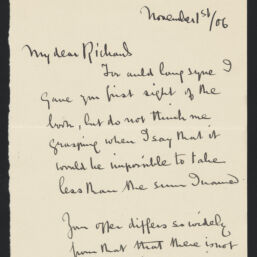 November 1st/06
My dear Richards
For auld lang syne I
gave you first sight of the
book, but do not think me
grasping when I say that it
would be impossible to take
less than the sum I named
Your offer differs so widely
from that that there is not